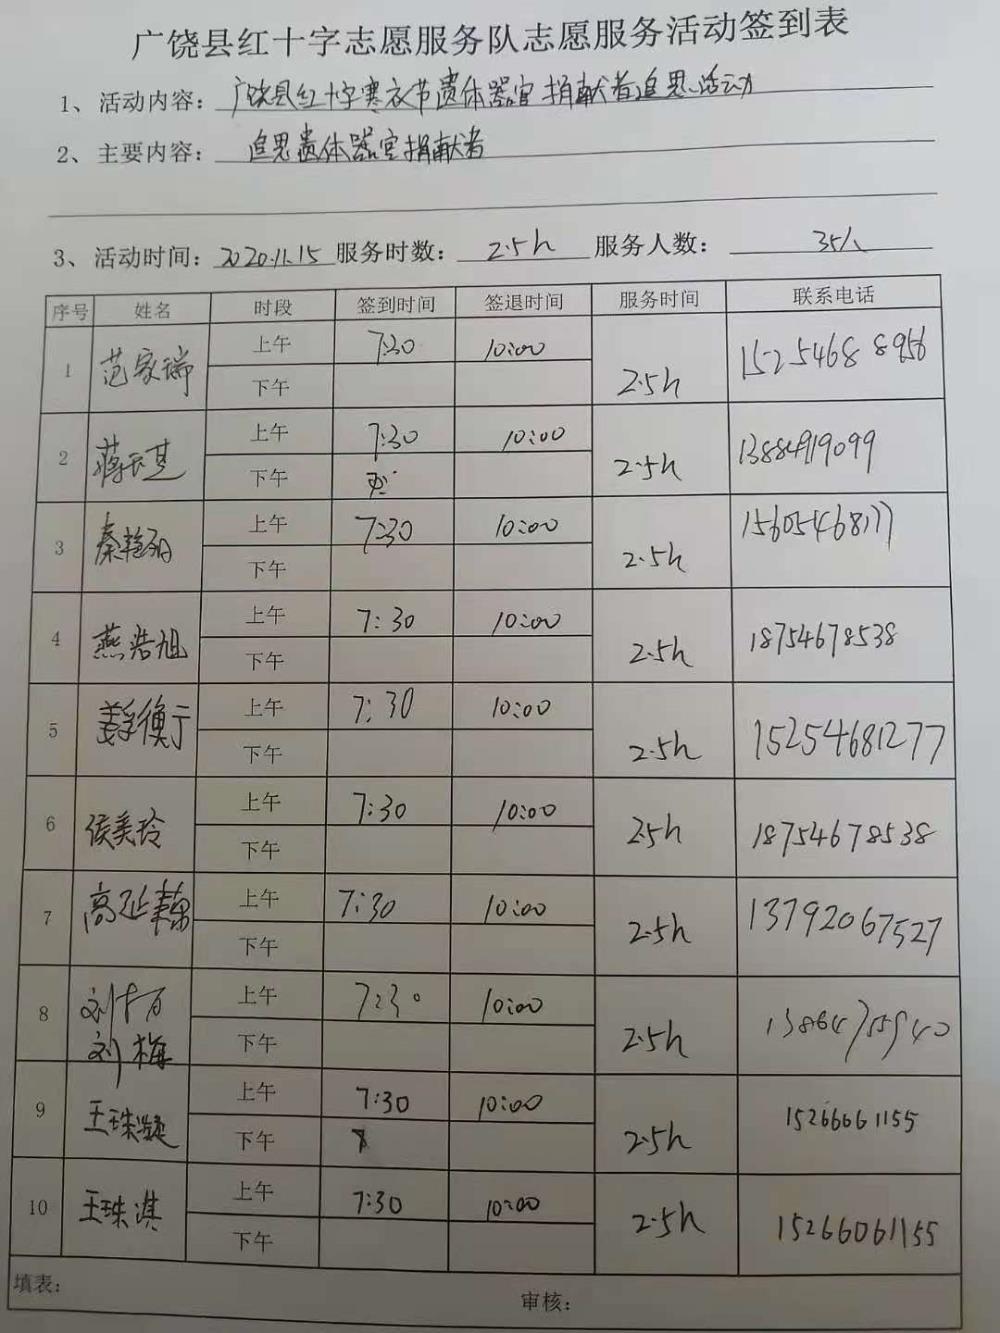 广饶县红十字志愿服务队志愿服务活动签到表
1、活动内容：广饶县红十字寒衣节遗体器官捐献者追思活动
2、主要内容：追思遗体器官捐献者
3、活动时间：2020.11.15 服务时数：2.5h 服务人数：35人
序号 姓名 时段 签到时间 签退时间 服务时间 联系电话
1 范家瑞 上午 7:30 10:00 2.5h 15254688956
下午
2 上午 7:30 10:00 2.5h 13884919099
下午
3 上午 7:30 10:00 2.5h 15605468177
下午
4 燕浩旭 上午 7:30 10:00 2.5h 18754678538
下午
5 上午 7:30 10:00 2.5h 15254681277
下午
6 侯美玲 上午 7:30 10:00 2.5h 18754678538
下午
7 高延 上午 7:30 10:00 2.5h 13792067527
下午
8 刘千万 上午 7:30 10:00 2.5h
刘梅 下午
9 王珠凝 上午 7:30 10:00 2.5h 15266061155
下午
10 王珠淇 上午 7:30 10:00 2.5h 15266061155
下午
填表：
审核：